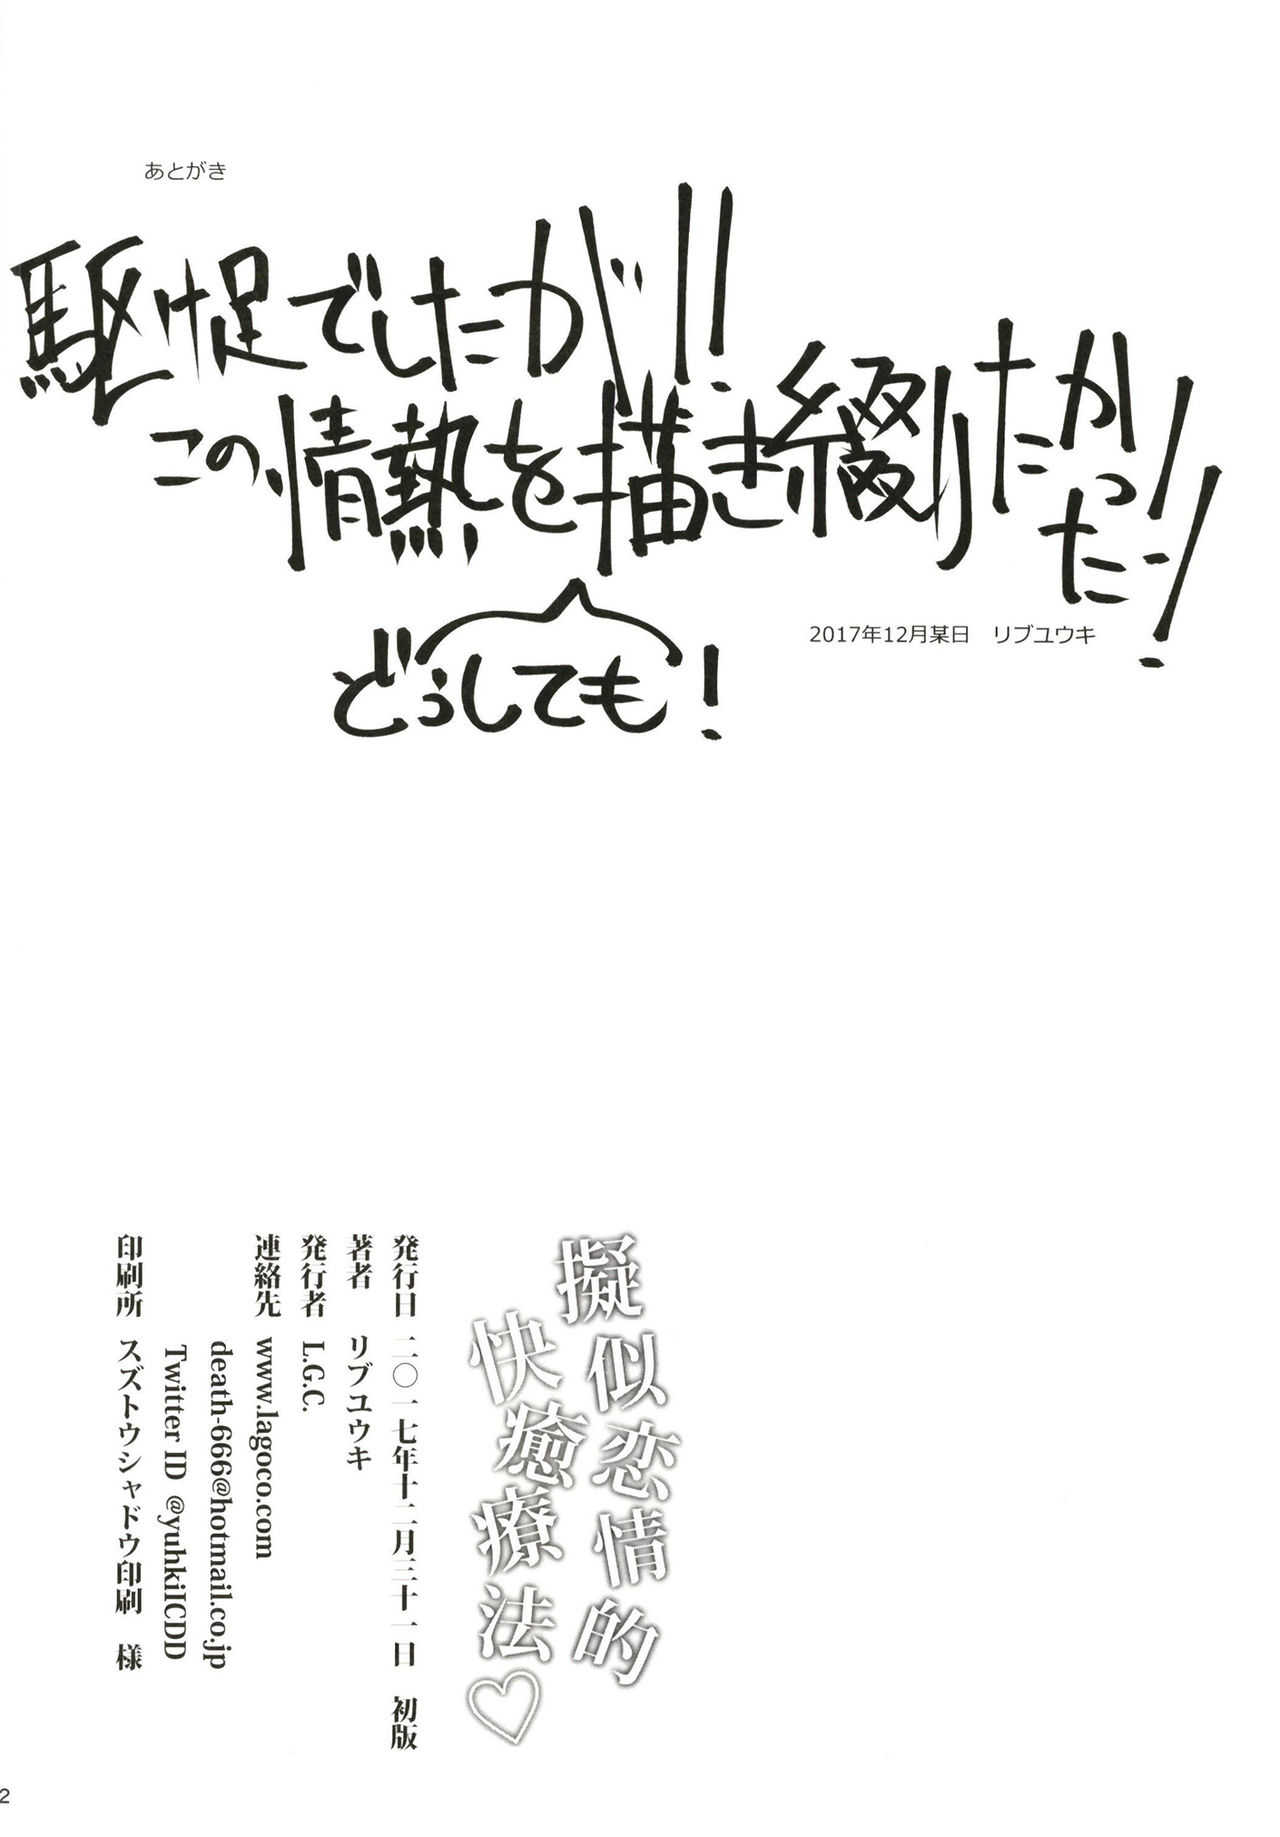 あとがき
駆け足でしたが!!
この情熱を描き綴りたかっ
たー!!
どぅしても!
2017年12月某日　リブユウキ
擬似恋情的
快癒療法♡
発行日 二〇一七年十二月三十一日 初版
著者 リブユウキ
発行者 L.G.C.
連絡先 www.lagoco.com
death-666@hotmail.co.jp
Twitter ID @yuhkiICDD
印刷所 スズトウシャドウ印刷 様
2